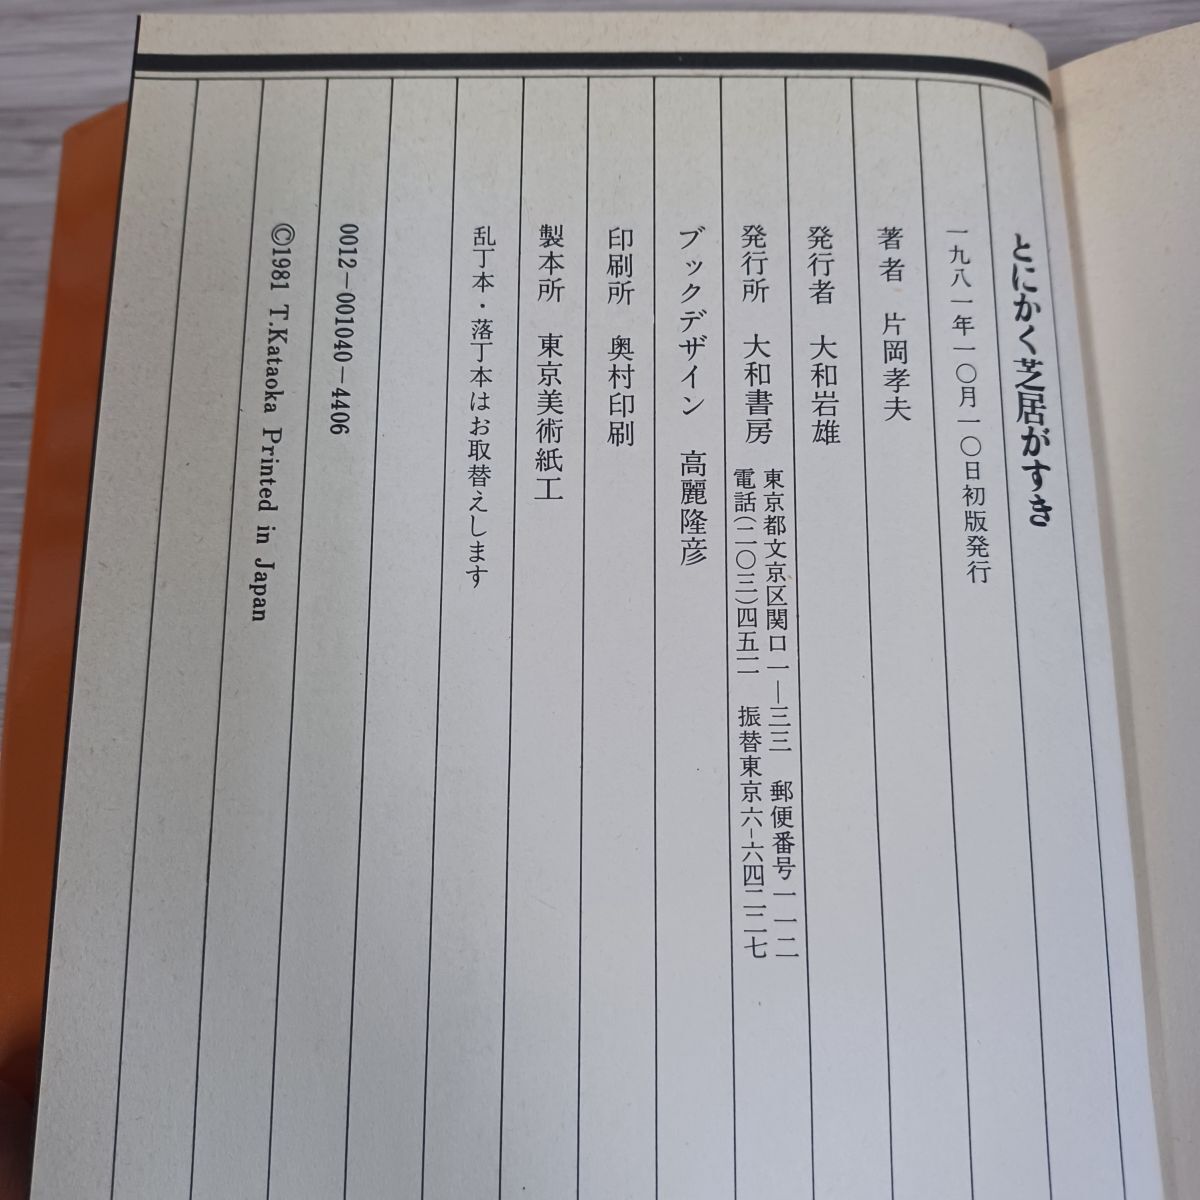 とにかく芝居がすき
一九八一年一〇月一〇日初版発行
著者 片岡孝夫
発行者 大和岩雄
発行所 大和書房
東京都文京区関口一—三三 郵便番号一一二
電話(二〇三)四五一一 振替東京六-六四二二七
ブックデザイン 高麗隆彦
印刷所 奥村印刷
製本所 東京美術紙工
乱丁本・落丁本はお取替えします
0012—001040—4406
©1981 T.Kataoka Printed in Japan